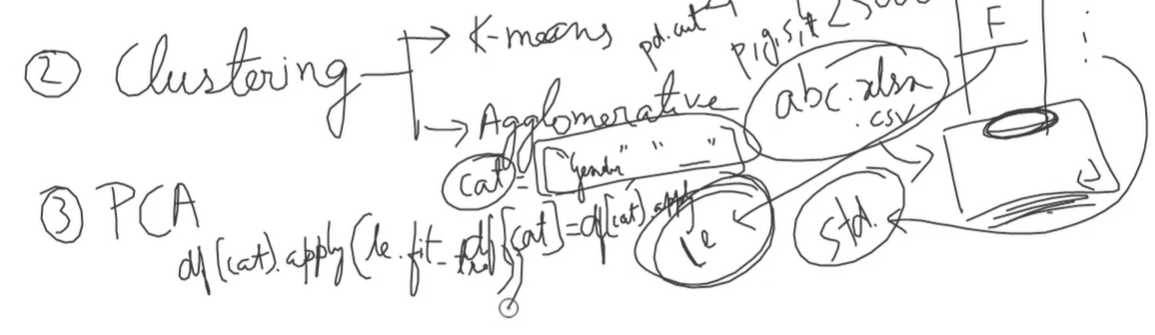 ② Clustering
K-means
pd.cut
Agglomerative
abc.xlsx
.csv
F
cat = ["gender" " __"
③ PCA
df[cat].apply(le.fit_
df[cat]=df[cat].apply
le
std.